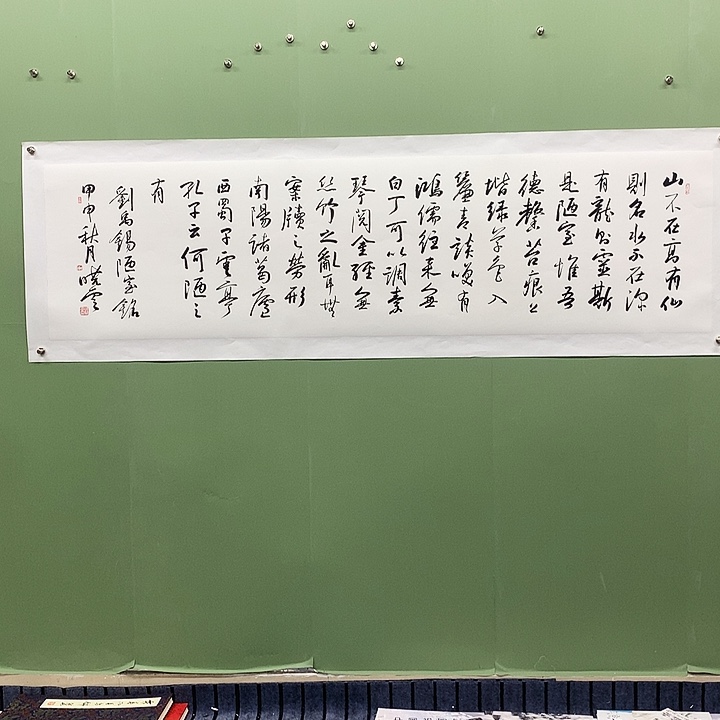 山不在高有仙
則名水不在深
有龍則靈斯
是陋室惟吾
德馨苔痕上
堦緑草色入
簾青談笑有
鴻儒往来無
白丁可以調素
琴閲金經無
丝竹之亂耳無
案牘之勞形
南陽諸葛廬
西蜀子雲亭
孔子云何陋之
有
劉禹錫陋室銘
甲申秋月曉雲